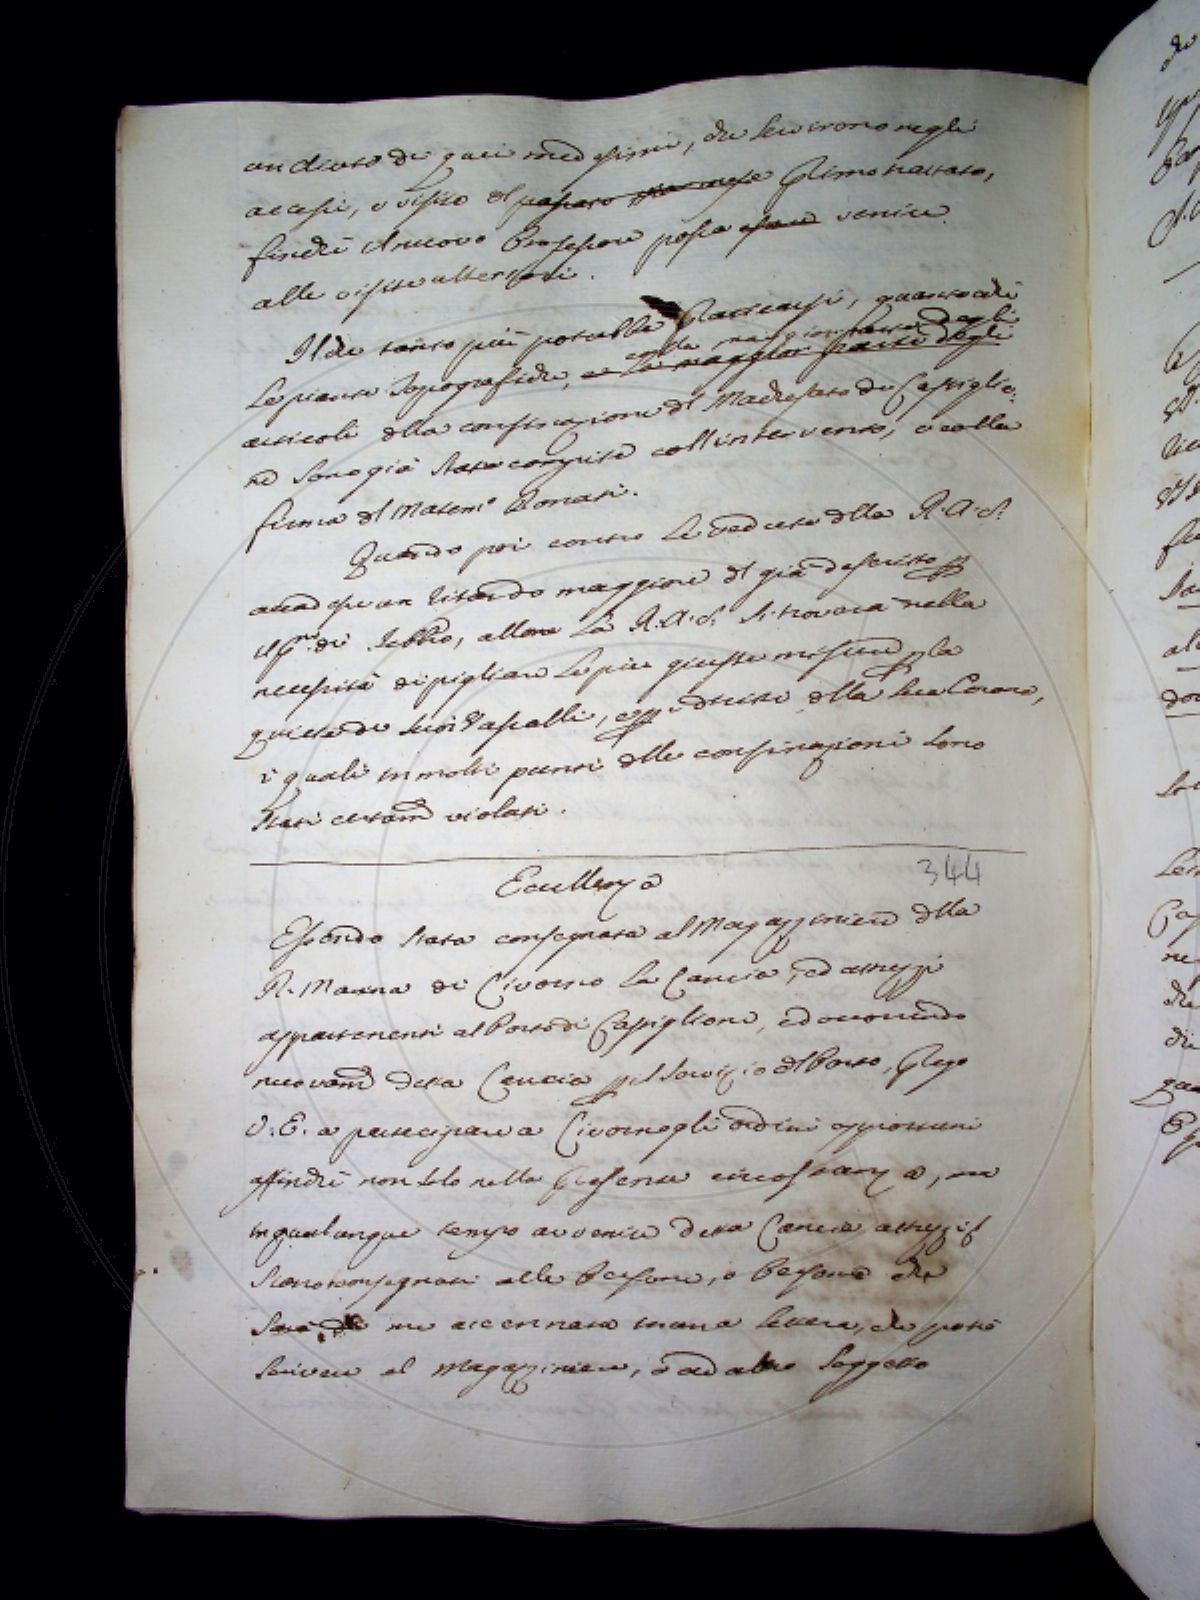 un di loro di quei medesimi, che servirono negli
accessi, o visto il passato Primo trattato,
finche il nuovo Professore possa essere venire
alle visite ulteriori.
Il che tanto più potrebbe praticarsi, quanto che
colla maggior parte degli
le piante Topografiche, e la maggior parte degli
articoli della confinazione del Madrefato di Castiglio=
ne sono già state compite coll'intervento, e colla
firma del Matem.o Donati.
Quando poi contro le vedute della R. A. S.
accadesse un ritardo maggiore del già descritto
allora la R. A. S. si troverà nella
necessità di pigliare le più giuste misure per la
quiete de suoi Vassalli, e per i diritti della sua Corona,
i quali in molti punti delle confinazioni sono
stati certam.e violati.
344
Eccellenza
Essendo stata consegnata al Magazziniere della
R. Marina di Livorno la Lancia, ed attrezzi
appartenenti al Porto di Castiglione, ed occorrendo
nuovam.e detta Lancia per il servizio del Porto, prego
V. E. a partecipare a Livorno gli ordini opportuni
affinchè non solo nella presente circostanza, ma
in qualunque tempo avvenire detta Lancia attrezzi
siano consegnati alle Persone, o Persona che
sarà me accennata in una lettera, che potrò
scrivere al Magazziniere, o ad altro soggetto